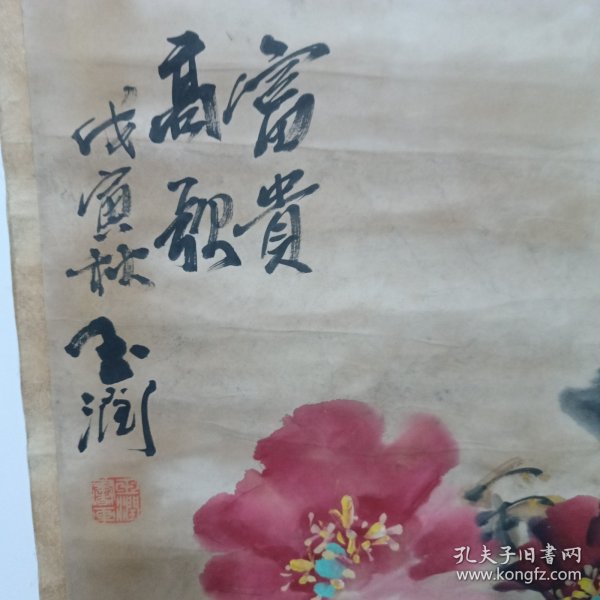 富貴
高歌
戊寅秋
玉潤
孔夫子旧书网
www.kongfz.com